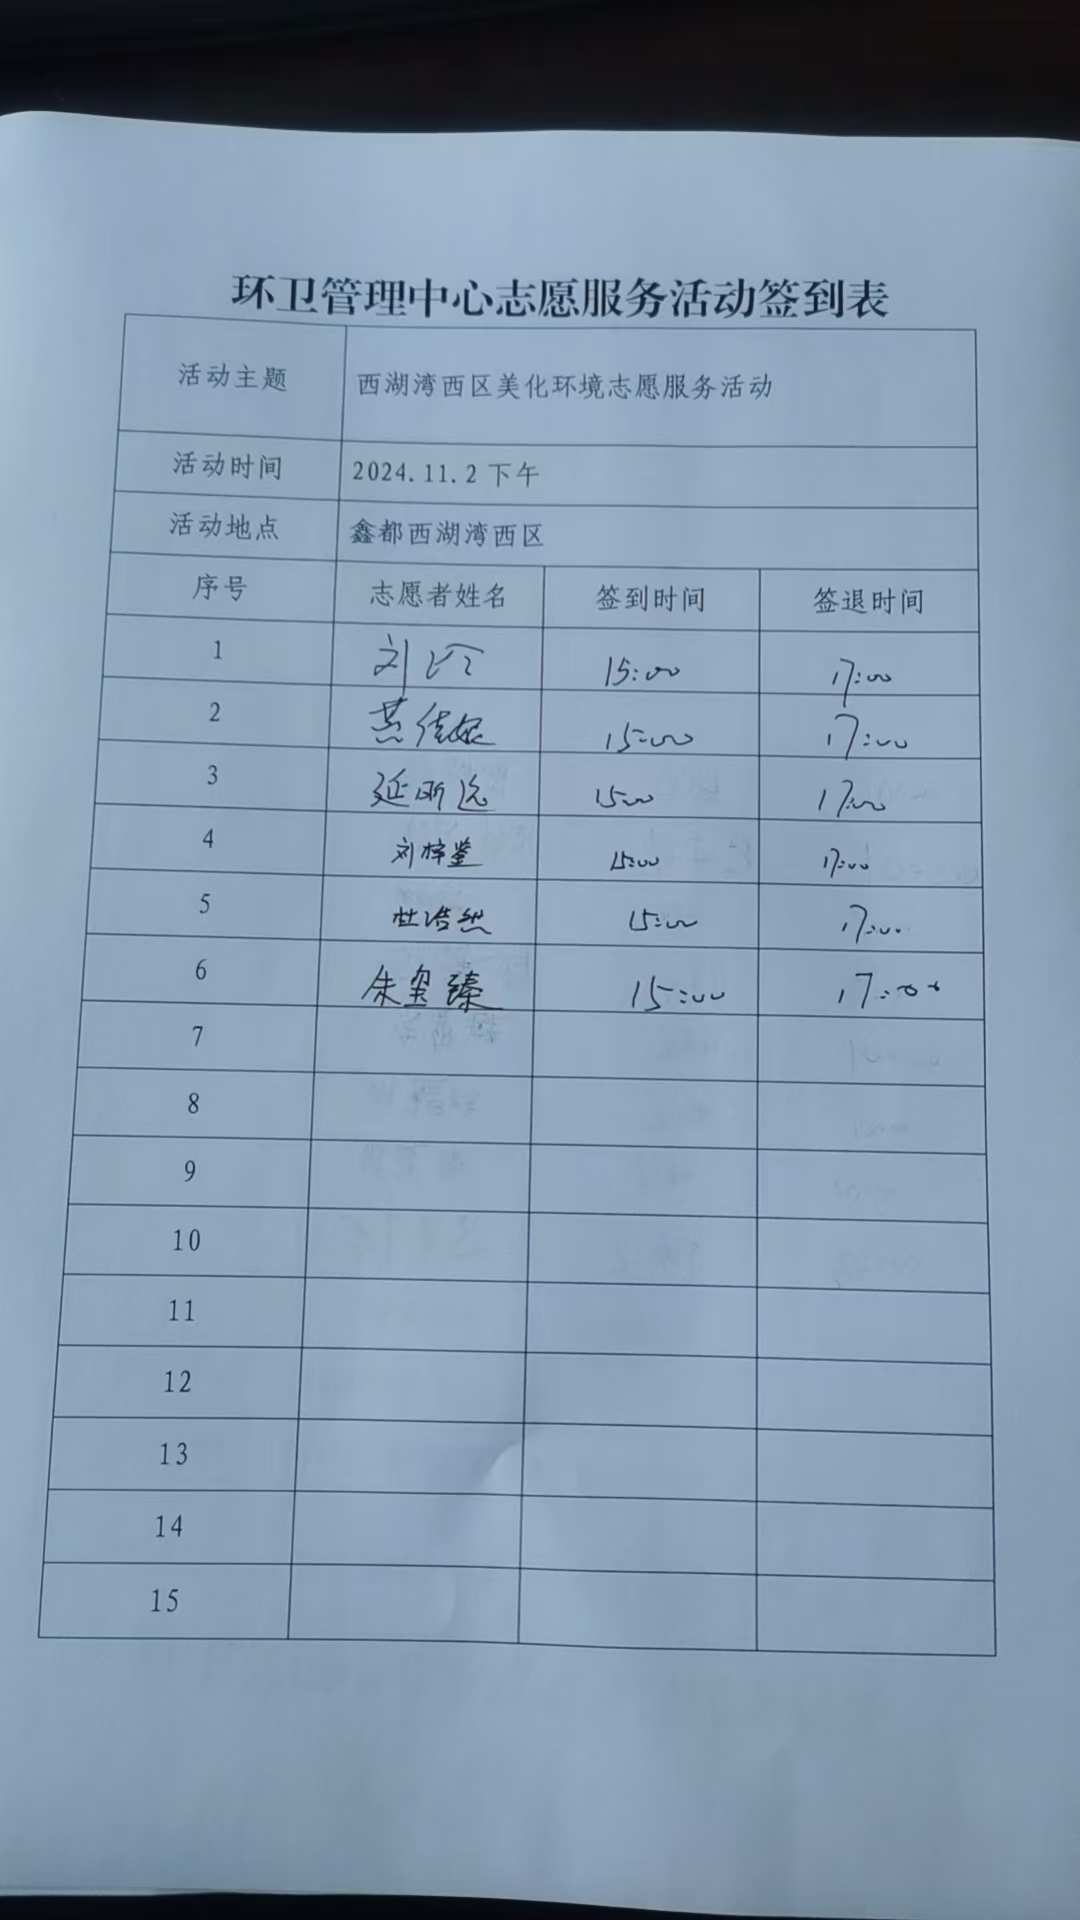 环卫管理中心志愿服务活动签到表
活动主题 西湖湾西区美化环境志愿服务活动
活动时间 2024.11.2下午
活动地点 鑫都西湖湾西区
序号 志愿者姓名 签到时间 签退时间
1 刘 15:00 17:00
2 燕佳妮 15:00 17:00
3 延昕远 1500 17:00
4 刘梓鉴 15:00 17:00
5 杜浩然 15:00 17:00
6 朱玺臻 15:00 17:00
7
8
9
10
11
12
13
14
15